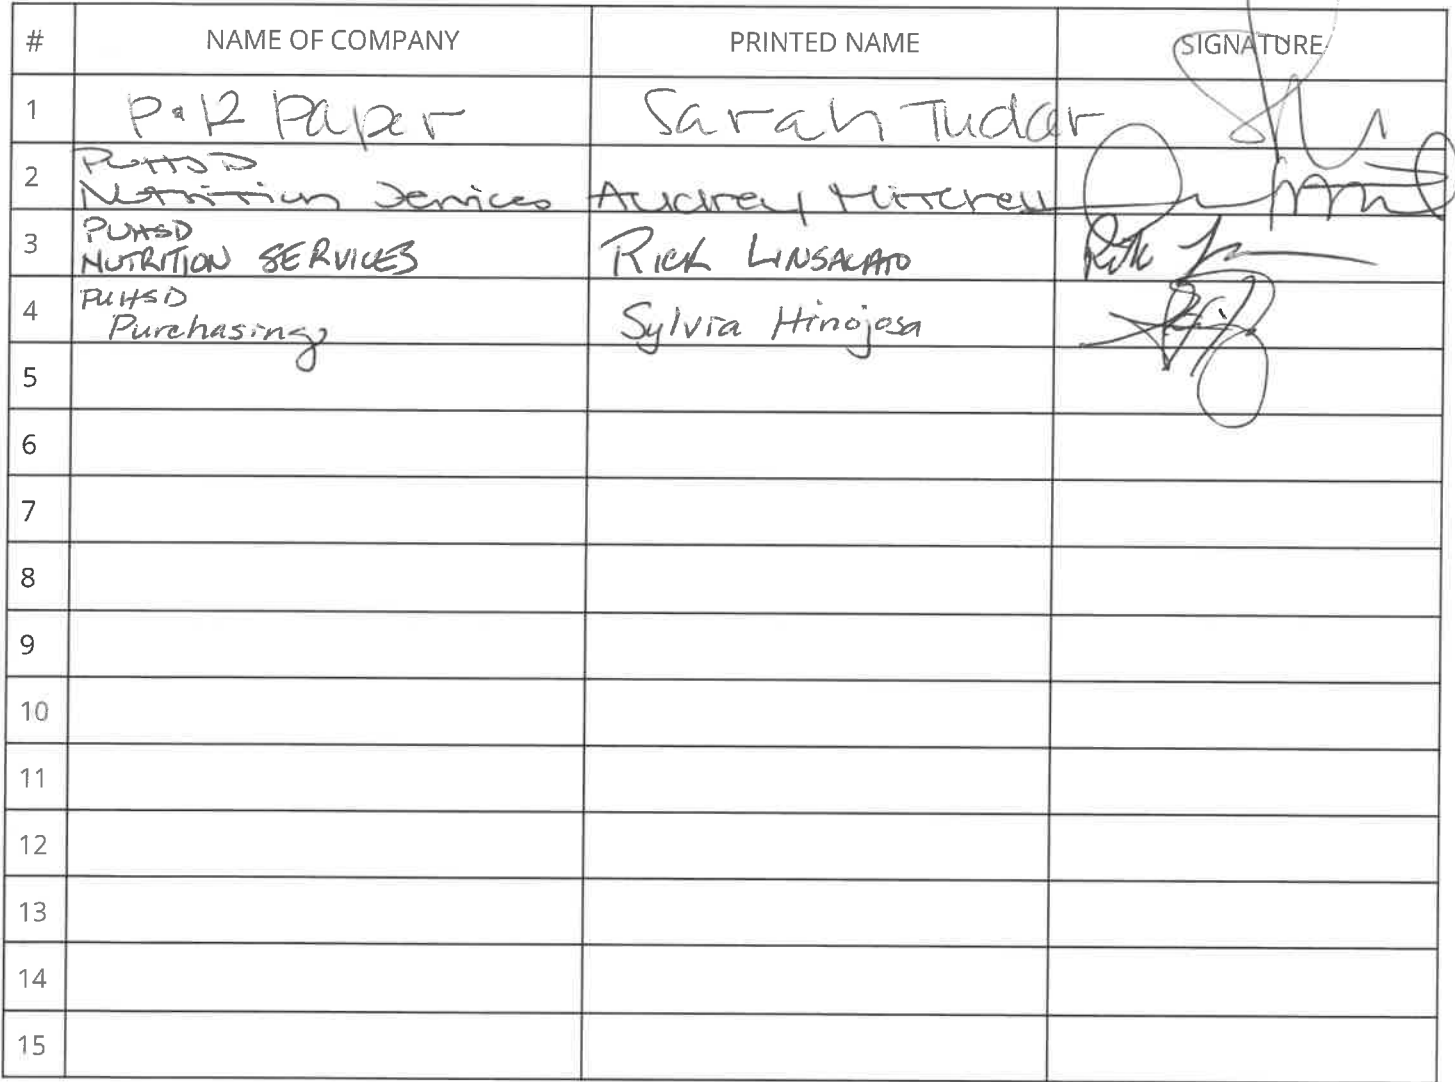 # NAME OF COMPANY PRINTED NAME SIGNATURE
1 P&R Paper Sarah Tudor
2 PUHSD
Nutrition Services Audrey Mitchell
3 PUHSD
NUTRITION SERVICES RICK LINSALATO
4 PUHSD
Purchasing Sylvia Hinojosa
5
6
7
8
9
10
11
12
13
14
15